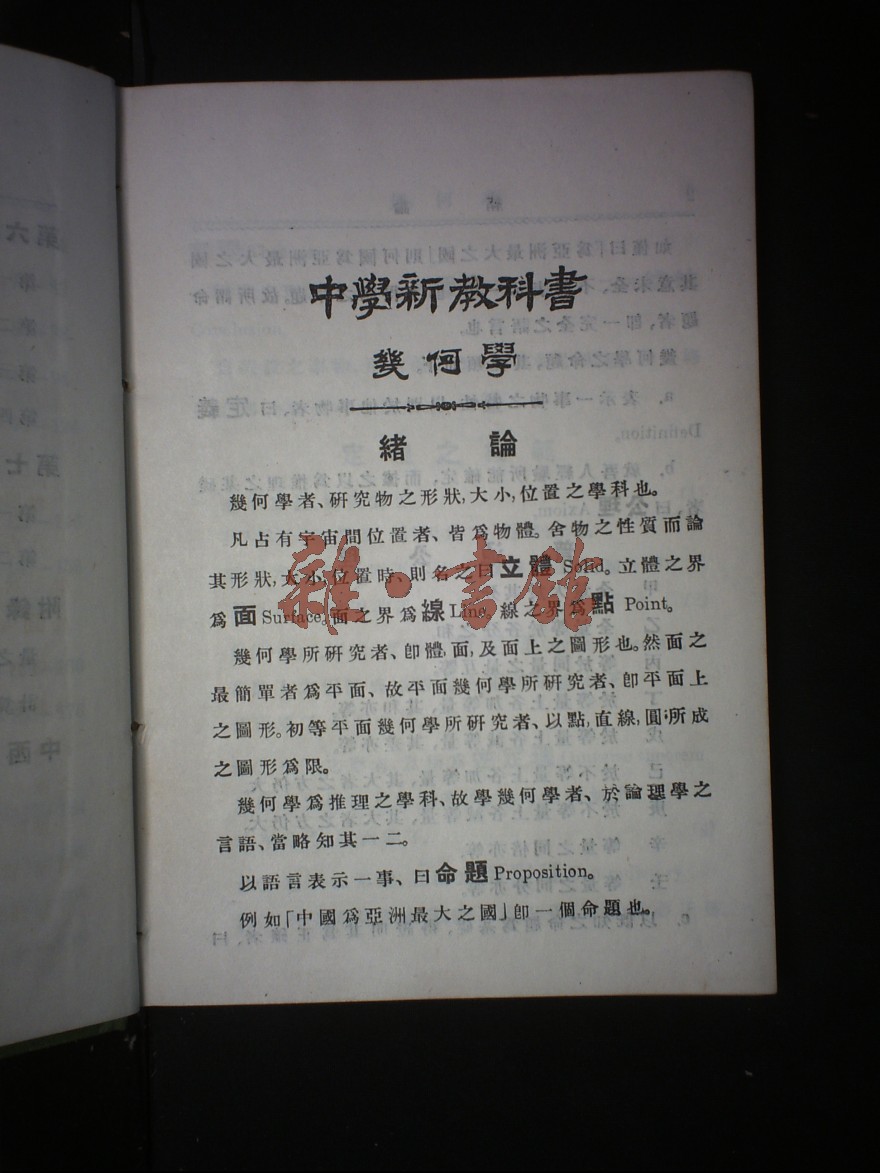 中學新教科書
幾何學
緒論
幾何學者、研究物之形狀,大小,位置之學科也。
凡占有宇宙間位置者、皆爲物體。舍物之性質而論
其形狀,大小,位置時、則名之曰立體 Solid。立體之界
爲面 Surface。面之界爲線 Line。線之界爲點 Point。
幾何學所研究者、卽體,面,及面上之圖形也。然面之
最簡單者爲平面、故平面幾何學所研究者、卽平面上
之圖形。初等平面幾何學所研究者、以點,直線,圓,所成
之圖形爲限。
幾何學爲推理之學科、故學幾何學者、於論理學之
言語、當略知其一二。
以語言表示一事、曰命題 Proposition。
例如「中國爲亞洲最大之國」卽一個命題也。
雜·書館
第六
第七
附錄
中西